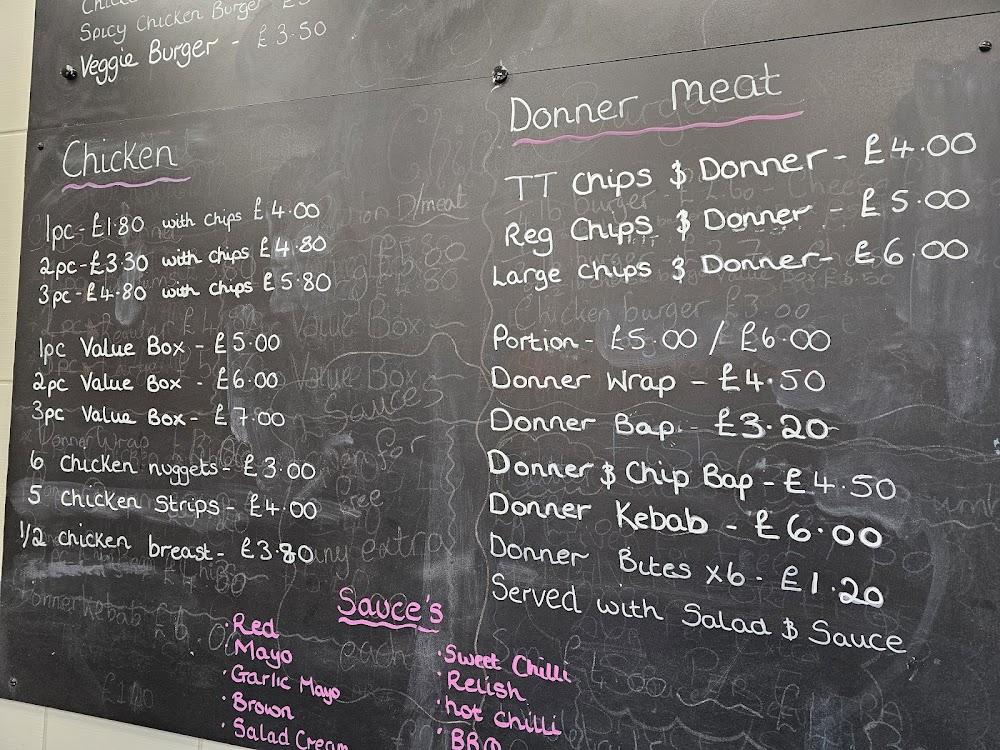 Spicy Chicken Burger
Veggie Burger - £3.50
Chicken
1pc - £1.80 with chips £4.00
2pc - £3.30 with chips £4.80
3pc - £4.80 with chips £5.80
1pc Value Box - £5.00
2pc Value Box - £6.00
3pc Value Box - £7.00
6 chicken nuggets - £3.00
5 chicken strips - £4.00
1/2 chicken breast - £3.80
Donner Meat
TT Chips $ Donner - £4.00
Reg Chips $ Donner - £5.00
Large chips $ Donner - £6.00
Portion - £5.00 / £6.00
Donner Wrap - £4.50
Donner Bap - £3.20
Donner $ Chip Bap - £4.50
Donner Kebab - £6.00
Donner Bites x6 - £1.20
Served with Salad $ Sauce
Sauce's
· Red
· Mayo
· Garlic Mayo
· Brown
· Salad Cream
· Sweet Chilli
· Relish
· hot chilli
· BBQ